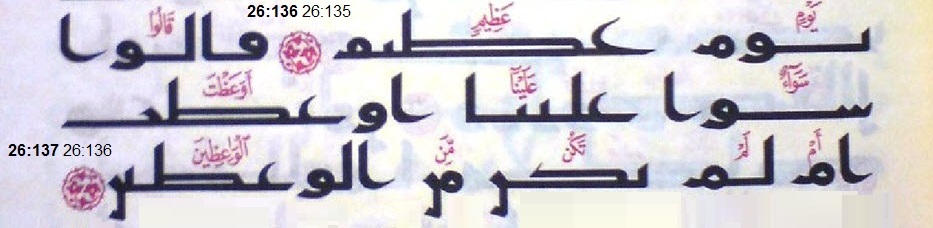 26:136 26:135
يَوْمٍ عَظِيمٍ قَالُوا
يوم عظيم قالوا
سَوَآءٌ عَلَيْنَآ أَوَعَظْتَ
سوا علينا اوعظت
أَمْ لَمْ تَكُن مِّنَ ٱلْوَٰعِظِينَ
ام لم تكن من الوعظين
26:137 26:136